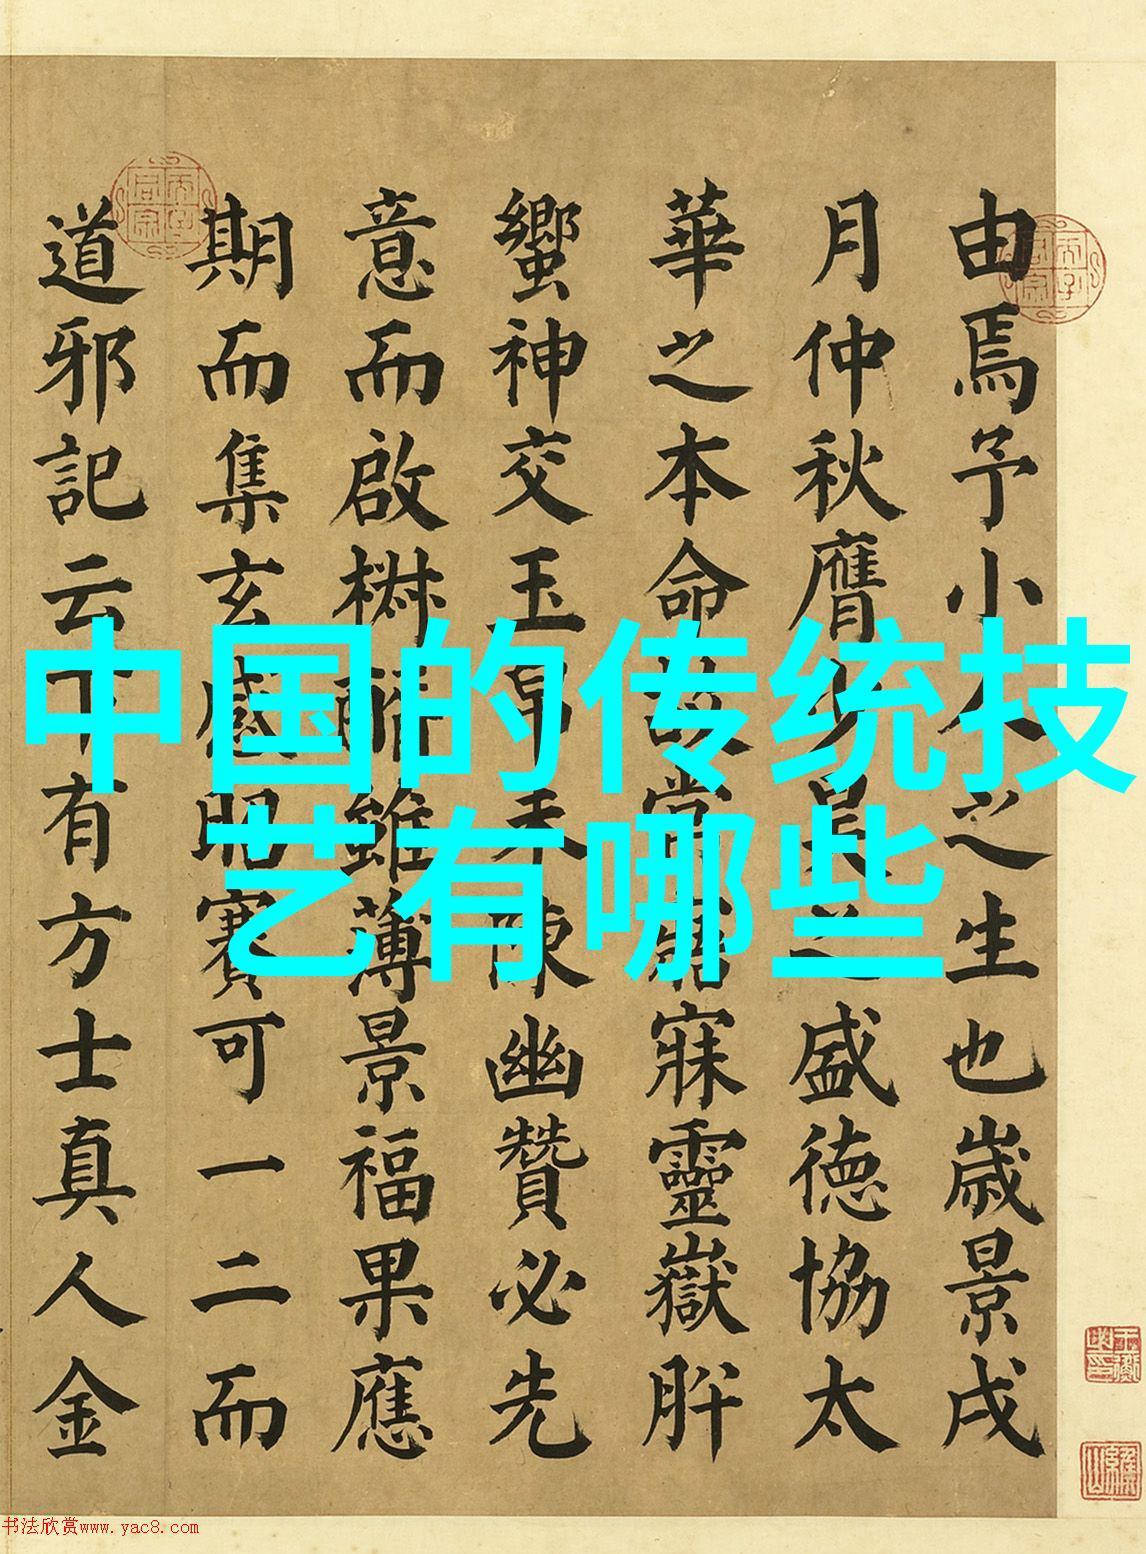 中国的传统技
艺有哪些
由焉予小人之生也歲景戌
月仲秋膺少昊之盛德協太
華之本命故常寤寐靈嶽肸
蠁神交玉帛未陳幽贊必先
意而啟醮雖薄景福果應
期而集玄感昭賽可一二而
道邪記云有方士真人金
书法欣赏www.yac8.com